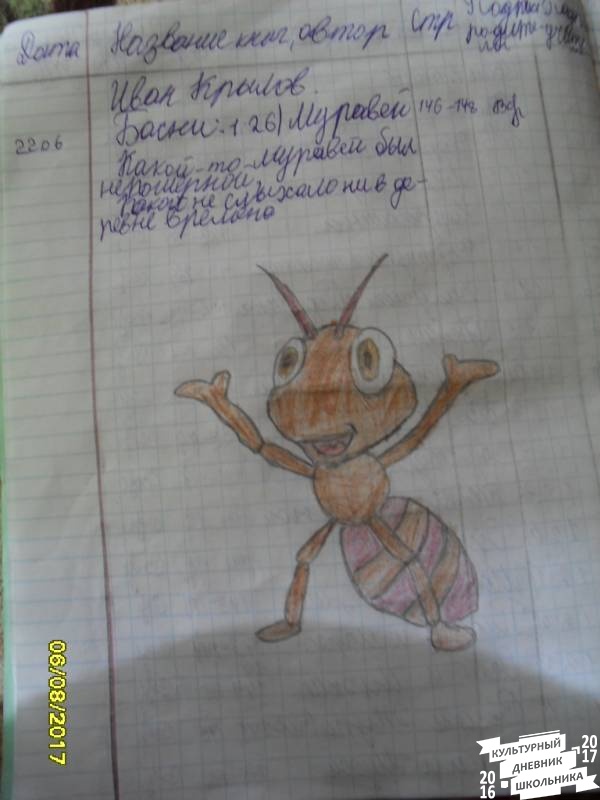 Дата Название книг, автор стр Подпись
родите-
Иван Крылов.
Басни: 1.26) Муравей 146-148
2206
Какой-то муравей был
непомерной
Какой не слыхало ни в де-
ревне времена
06/08/2017
КУЛЬТУРНЫЙ
ДНЕВНИК
ШКОЛЬНИКА
2016
2017